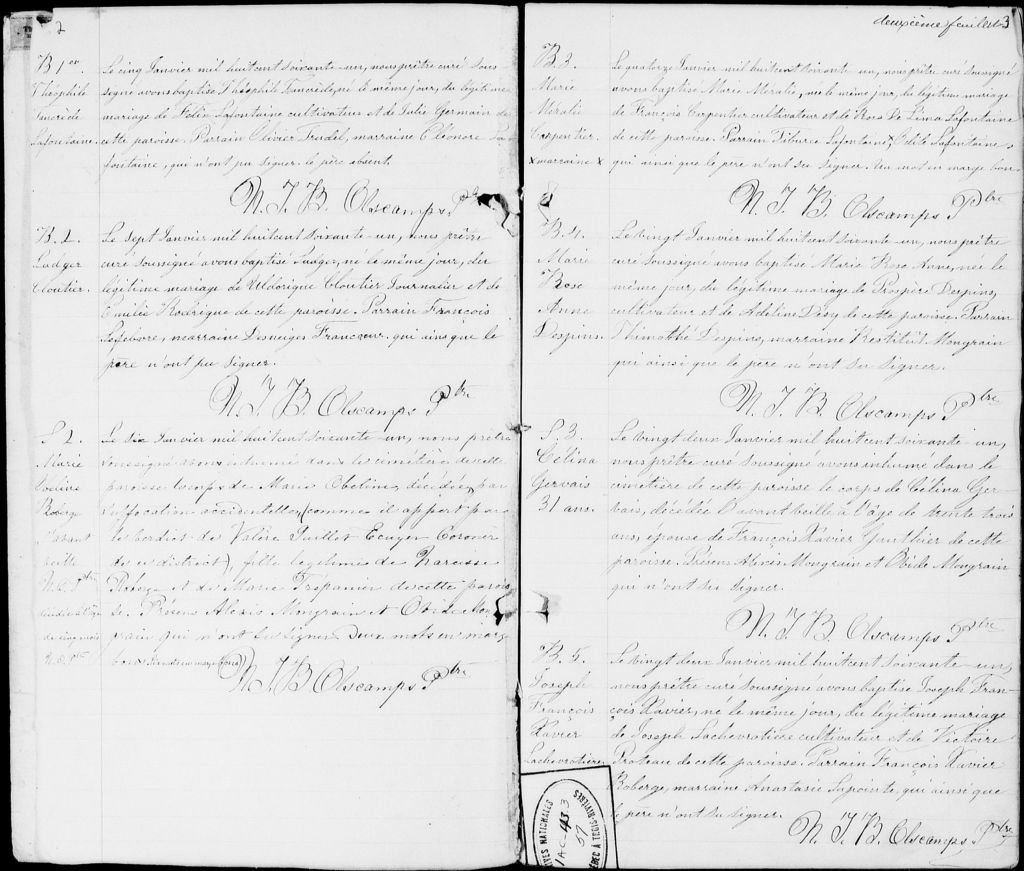 2
B 1er.
Théophile
Tancrède
Lafontaine.
Le cinq Janvier mil huit cent soixante-un, nous prêtre curé sous-
signé avons baptisé Théophile Tancrède, né le même jour, du légitime
mariage de Félix Lafontaine cultivateur et de Julie Germain de
cette paroisse. Parrain Olivier Trudel, marraine Eléonore La-
fontaine, qui n'ont pu signer. le père absent.
N. J. B. Olscamps Ptre
B. 2.
Ludger
Cloutier.
Le sept Janvier mil huit cent soixante-un, nous prêtre
curé soussigné avons baptisé Ludger, né le même jour, du
légitime mariage de Uldorique Cloutier Journalier et de
Emilie Rodrigue de cette paroisse. Parrain François
Lefebvre, marraine Desneiges Francoeur. qui ainsi que le
père n'ont pu signer.
N. J. B. Olscamps Ptre
S 2.
Marie
Obeline
Roberge
l'avant
veille
N. O. Ptre
de cinq mois
N. O. Ptre
Le dix Janvier mil huit cent soixante-un, nous prêtre
soussigné avons inhumé dans le cimétière de cette
paroisse le corps de Marie Obeline, décédée par
suffocation accidentelle, (comme il appert par
le verdict de Valère Guillet Ecuyer Coroner
de ce district), fille légitime de Narcisse
Roberge et de Marie Trepanier de cette parois-
se. Présens Alexis Mongrain et Obide Mon-
grain qui n'ont su signer. Deux mots en marge
bons
N. J. B Olscamps Ptre
deuxième feuillet 3
B 3.
Marie
Méralie
Carpentier.
x marraine x
Le quatorze Janvier mil huit cent soixante-un, nous prêtre curé soussigné
avons baptisé Marie Méralie, née le même jour, du légitime mariage
de François Carpentier cultivateur et de Rose De Lima Lafontaine
de cette paroisse. Parrain Tiburce Lafontaine, x Odile Lafontaine,
qui ainsi que le père n'ont su signer. Un mot en marge bon.
N. J. B. Olscamps Ptre
B. 4.
Marie
Rose
Anne
Despins.
Le vingt Janvier mil huit cent soixante-un, nous prêtre
curé soussigné avons baptisé Marie Rose Anne, née le
même jour, du légitime mariage de Prospère Despins,
cultivateur et de Adéline Désy de cette paroisse. Parrain
Thimothé Despins, marraine Restitut Mongrain
qui ainsi que le père n'ont su signer.
N. J. B. Olscamps Ptre
S. 3.
Célina
Gervais
31 ans.
Le vingt deux Janvier mil huit cent soixante-un,
nous prêtre curé soussigné avons inhumé dans le
cimetière de cette paroisse le corps de Célina Ger-
vais, décédée l'avant veille à l'âge de trente trois
ans, épouse de François Xavier Gauthier de cette
paroisse. Présens Alexis Mongrain et Obide Mongrain
qui n'ont su signer.
N. J. B. Olscamps Ptre
B. 5.
Joseph
François
Xavier
Lachevrotière
Le vingt deux Janvier mil huit cent soixante-un,
nous prêtre curé soussigné avons baptisé Joseph Fran-
çois Xavier, né le même jour, du légitime mariage
de Joseph Lachevrotière cultivateur et de Victoire
Proteau de cette paroisse. Parrain François Xavier
Roberge, marraine Anastasie Lapointe, qui ainsi que
le père n'ont su signer.
N. J. B. Olscamps Ptre